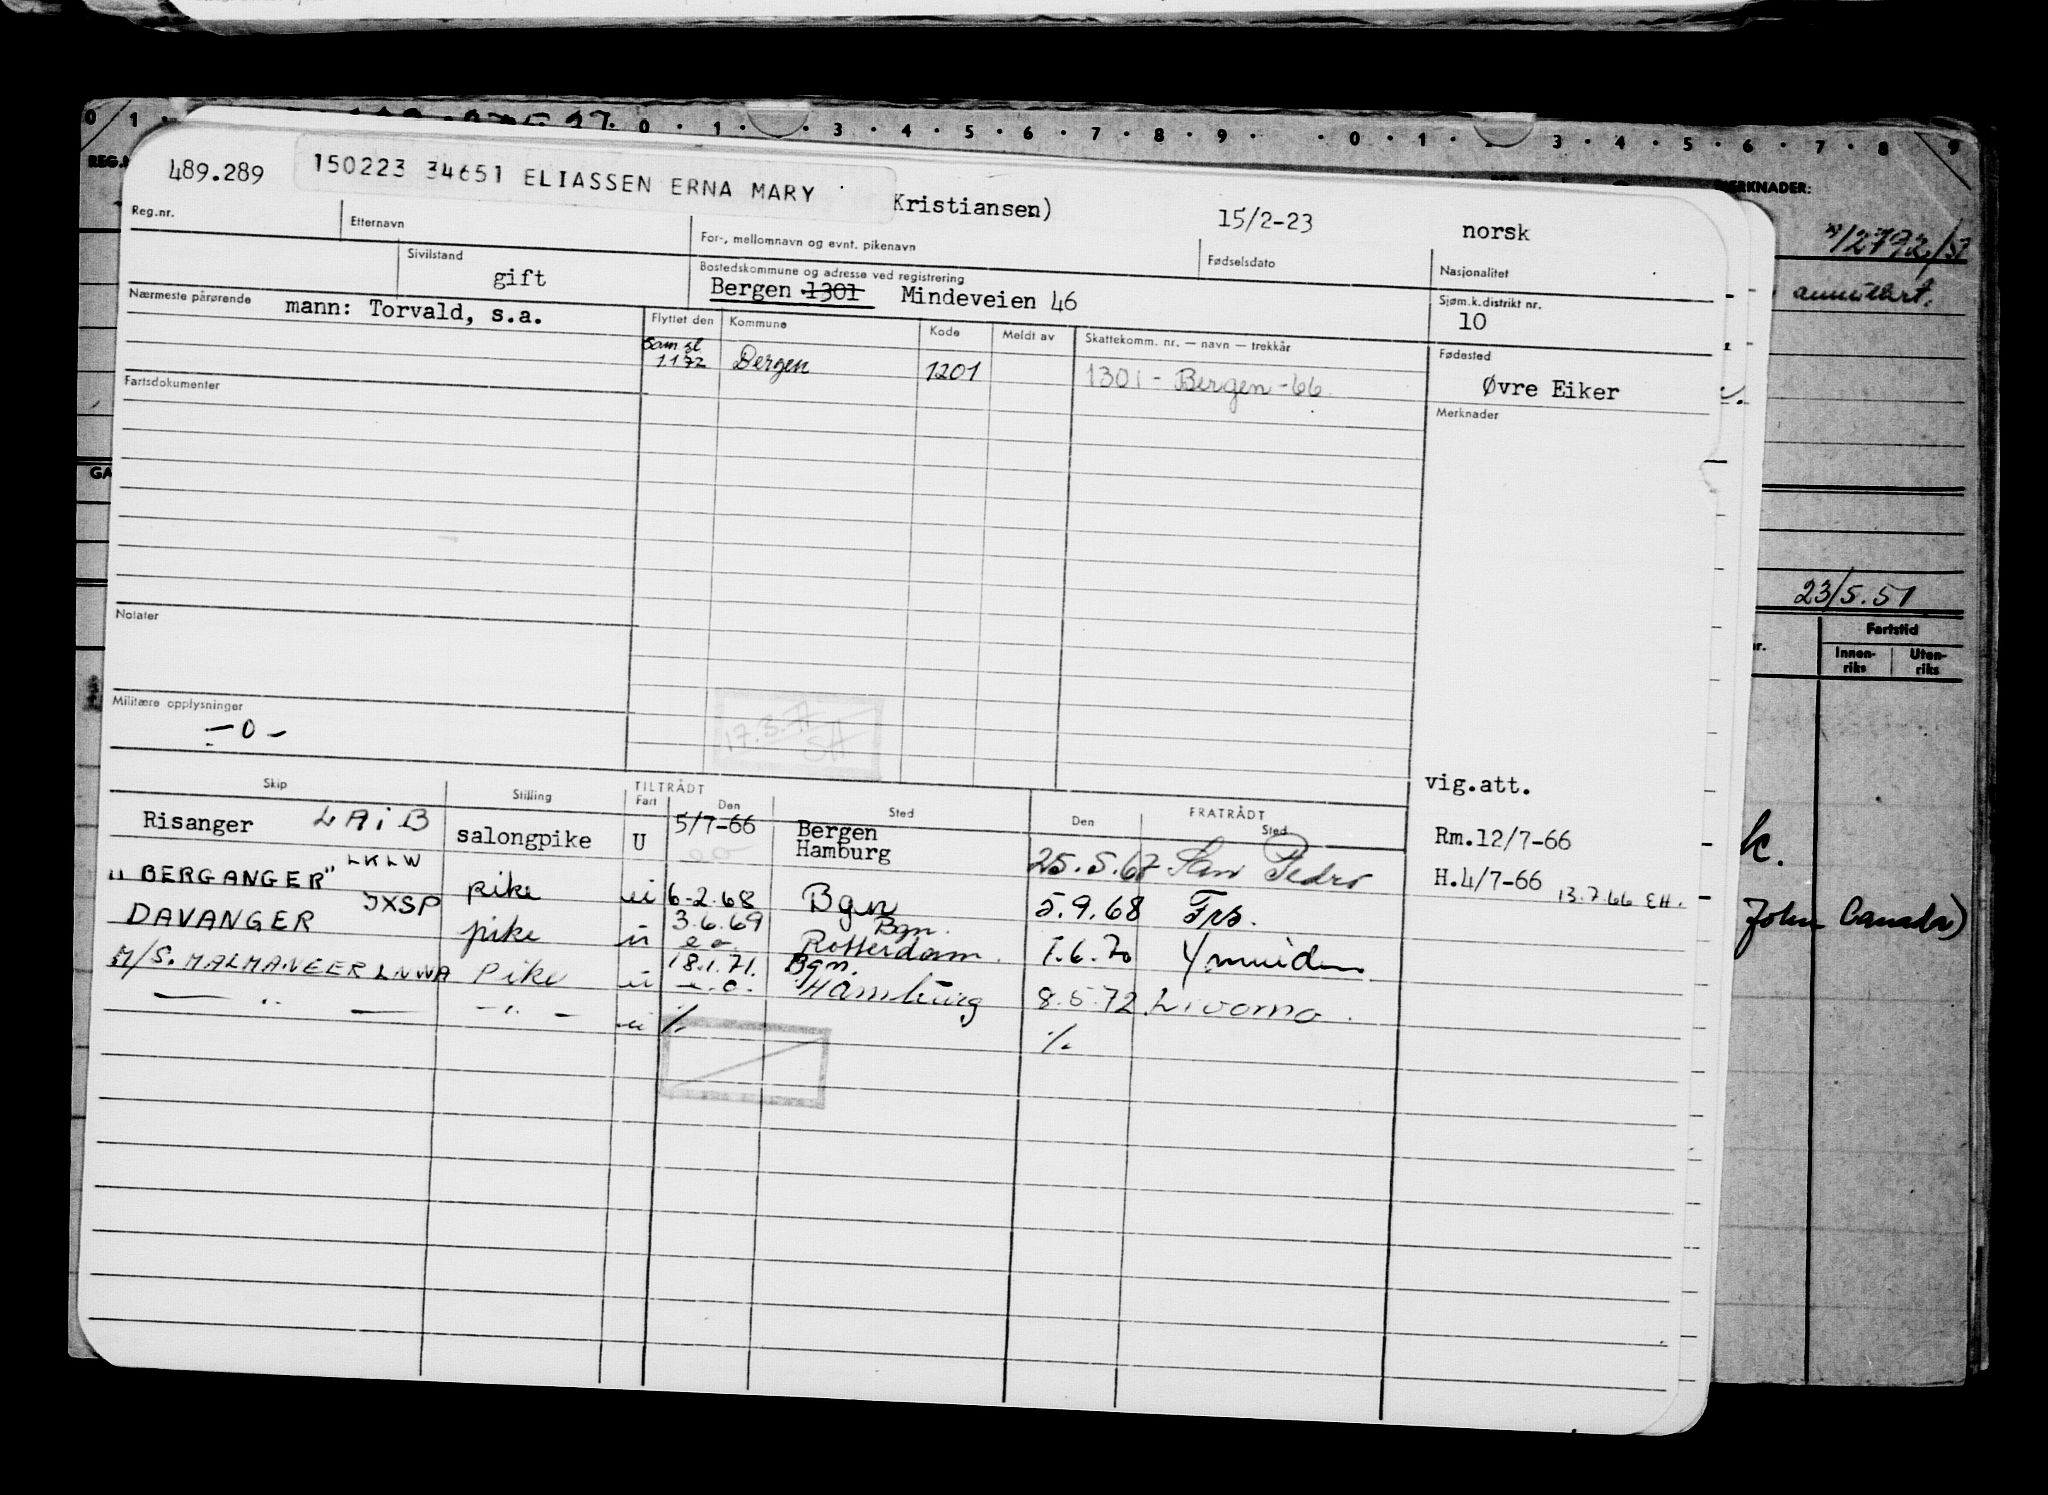 0 1 . 0 . 1 . 3 . 4 . 5 . 6 . 7 . 8 . 9 . 0 . 1 . 3 . 4 . 5 . 6 . 7 . 8 9
REG.N
MERKNADER:
489.289 150223 34651 ELIASSEN ERNA MARY Kristiansen) 15/2-23 norsk
Reg.nr. Etternavn For-, mellomnavn og evnt. pikenavn Fødselsdato Nasjonalitet
Sivilstand gift Bostedskommune og adresse ved registrering Sjøm.k.distrikt nr.
Bergen 1301 Mindeveien 46 10
Nærmeste pårørende mann: Torvald, s.a. Flyttet den Kommune Kode Meldt av Skattekomm. nr. — navn — trekkår Fødested
1.1.72 Bergen 1201 1301 - Bergen - 66 Øvre Eiker
Fartsdokumenter Merknader
Notater
Militære opplysninger
— 0 —
17.3.71
SA
vig.att.
Skip Stilling TILTRÅDT Fart Den Sted FRATRÅDT Den Sted
Risanger LAIB salongpike U 5/7-66 Bergen
Hamburg 25.5.67 San Pedro Rm.12/7-66
"BERGANGER" LKLW pike u 6-2.68 Bgn 5.9.68 Frs. H.4/7-66 13.7.66 EH.
DAVANGER JXSP pike u 3.6.69 Bgn.
e o Rotterdam. 1.6.70 Ymuiden
M/S. MALMANGER LNWA Pike u 18.1.71. Bgn.
e.o. Hamburg 8.5.72 Livorno.
— " — - " - u %
%
23/5.51
Fartstid
Innen-
riks
Uten-
riks
k.
John Canada)